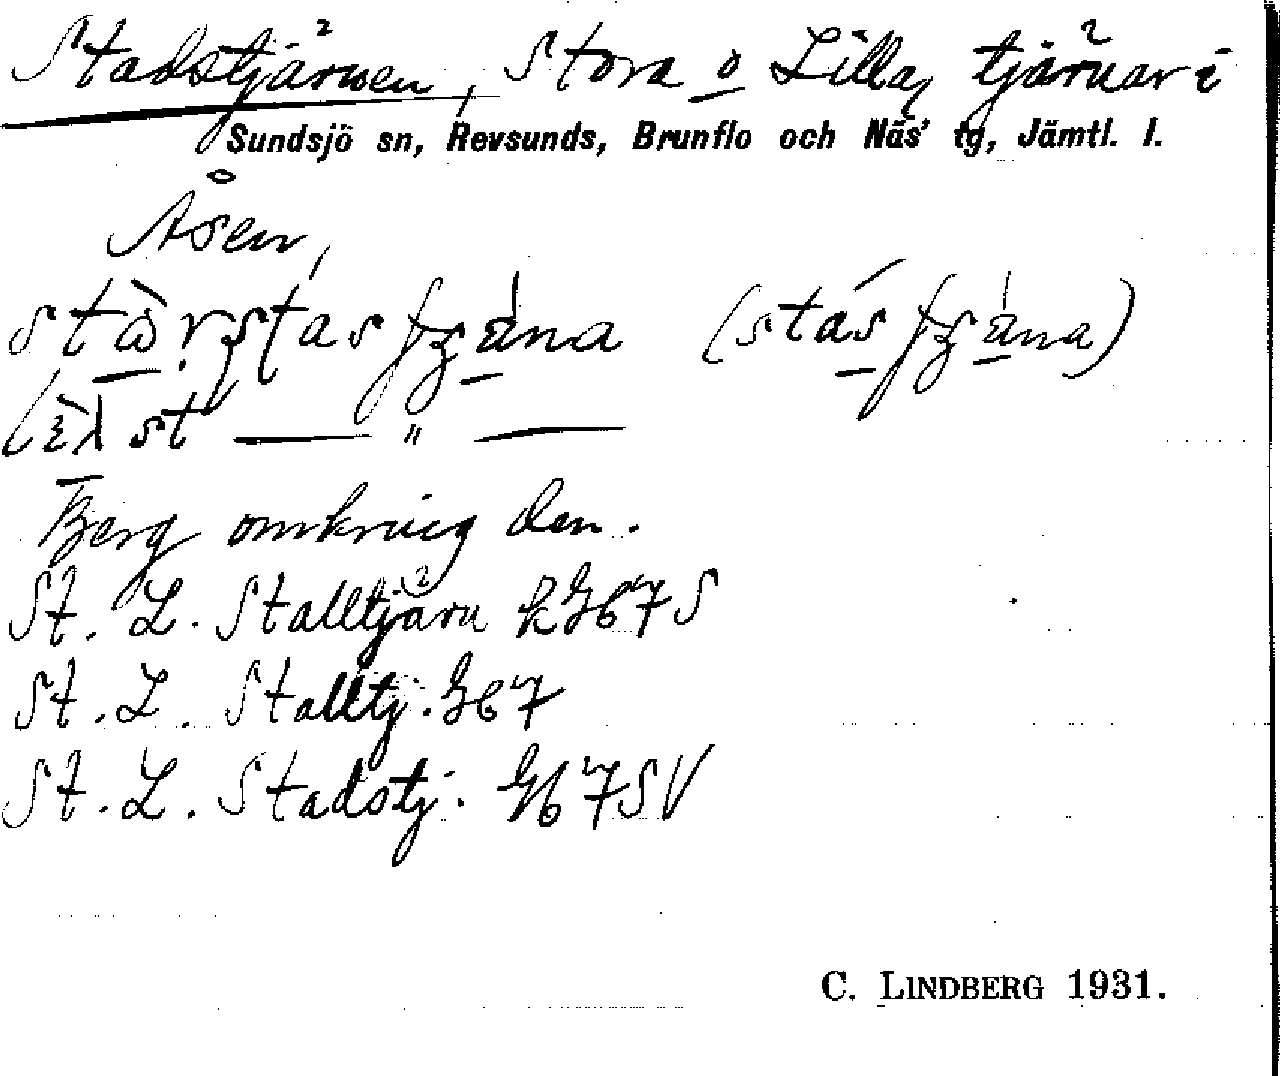 Stadstjärnen, Stora o Lilla, tjärnar i
Sundsjö sn, Revsunds, Brunflo och Näs' tg, Jämtl. l.
Åsen,
st
Berg omkring den.
St. L. Stalltjärn k Gb7S
St. L. Stalltj. Gb7
St. L. Stadstj. Gb7SV
C. LINDBERG 1931.